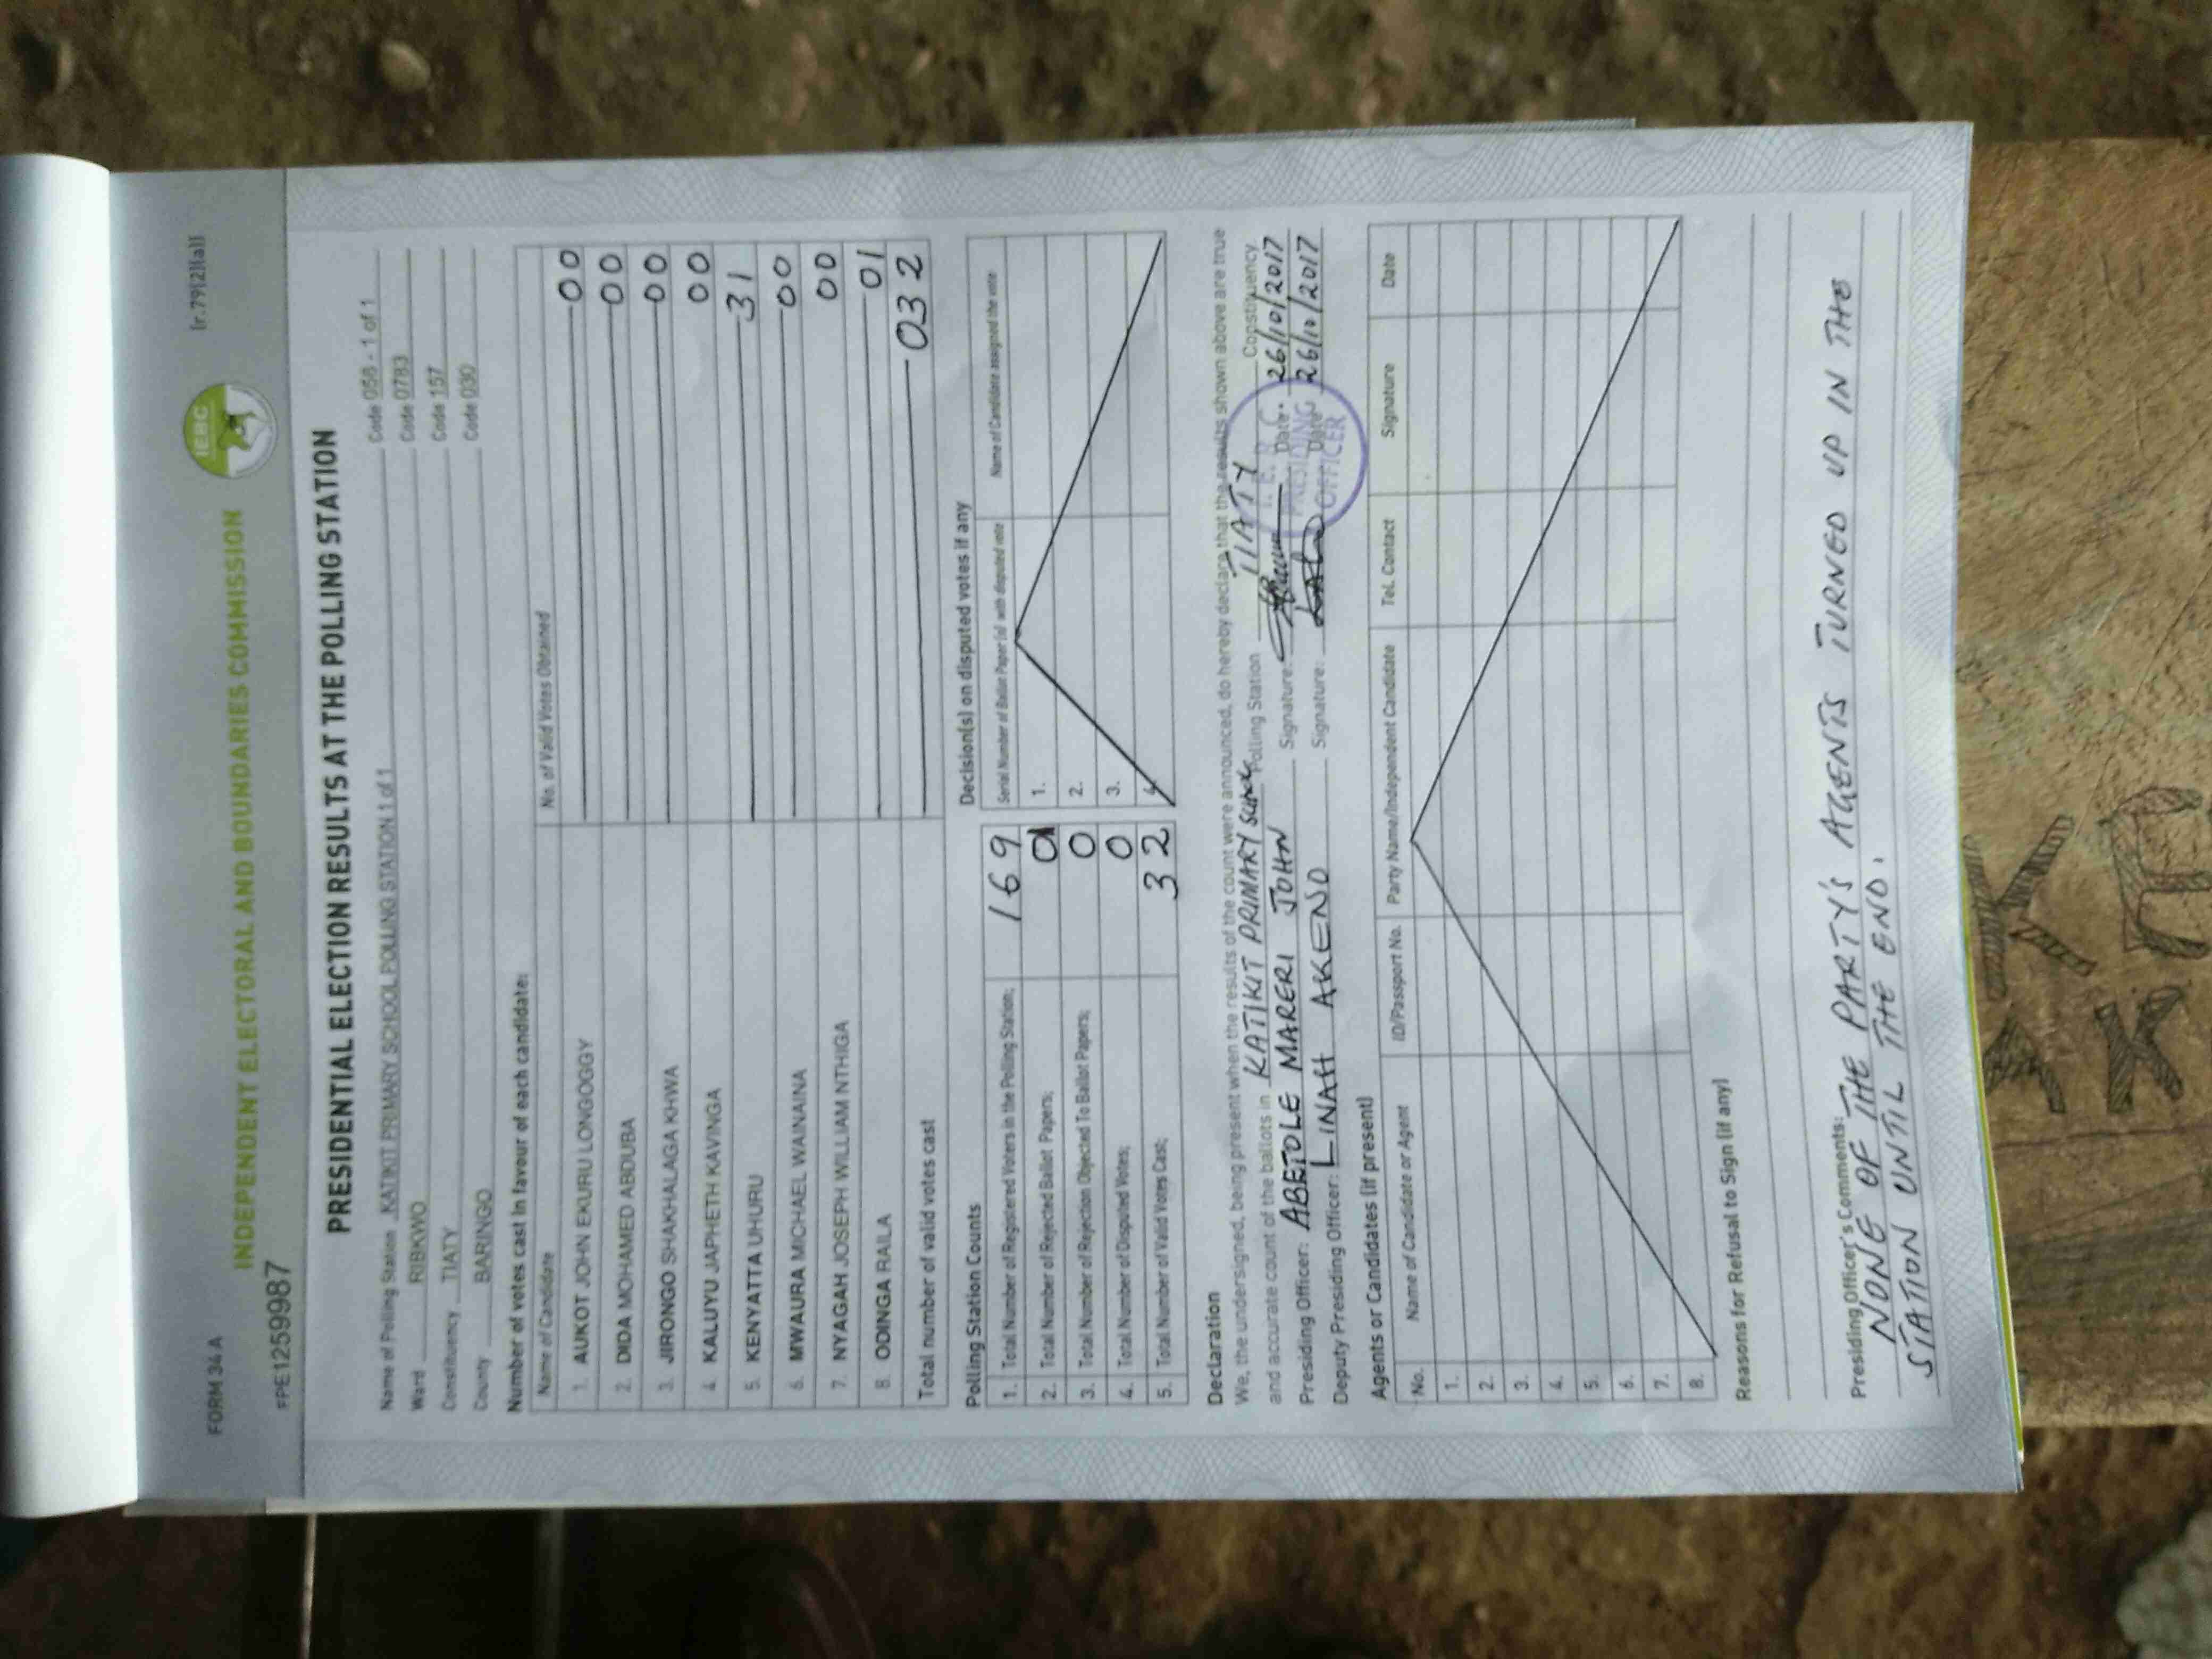 FORM 34 A
[r.79(2)(a)]
IEBC
INDEPENDENT ELECTORAL AND BOUNDARIES COMMISSION
FPE1259987
PRESIDENTIAL ELECTION RESULTS AT THE POLLING STATION
Name of Polling Station KATIKIT PRIMARY SCHOOL POLLING STATION 1 of 1 Code 058 - 1 of 1
Ward RIBKWO Code 0783
Constituency TIATY Code 157
County BARINGO Code 030
Number of votes cast in favour of each candidate:
Name of Candidate No. of Valid Votes Obtained
1. AUKOT JOHN EKURU LONGOGGY 00
2. DIDA MOHAMED ABDUBA 00
3. JIRONGO SHAKHALAGA KHWA 00
4. KALUYU JAPHETH KAVINGA 00
5. KENYATTA UHURU 31
6. MWAURA MICHAEL WAINAINA 00
7. NYAGAH JOSEPH WILLIAM NTHIGA 00
8. ODINGA RAILA 01
Total number of valid votes cast 032
Polling Station Counts
1. Total Number of Registered Voters in the Polling Station; 169
2. Total Number of Rejected Ballot Papers;
3. Total Number of Rejection Objected To Ballot Papers; 0
4. Total Number of Disputed Votes; 0
5. Total Number of Valid Votes Cast; 32
Decision(s) on disputed votes if any
Serial Number of Ballot Paper (s) with disputed vote Name of Candidate assigned the vote
1.
2.
3.
4.
Declaration
We, the undersigned, being present when the results of the count were announced, do hereby declare that the results shown above are true
and accurate count of the ballots in KATIKIT PRIMARY SCHOOL Polling Station TIATY Constituency
Presiding Officer: ABETOLE MARERI JOHN Signature: Date: 26/10/2017
Deputy Presiding Officer: LINAH AKENO Signature: Date 26/10/2017
I.E.B.C
PRESIDING
OFFICER
Agents or Candidates (if present)
No. Name of Candidate or Agent ID/Passport No. Party Name/Independent Candidate Tel. Contact Signature Date
1.
2.
3.
4.
5.
6.
7.
8.
Reasons for Refusal to Sign (if any)
Presiding Officer's Comments:
NONE OF THE PARTY'S AGENTS TURNED UP IN THE
STATION UNTIL THE END.